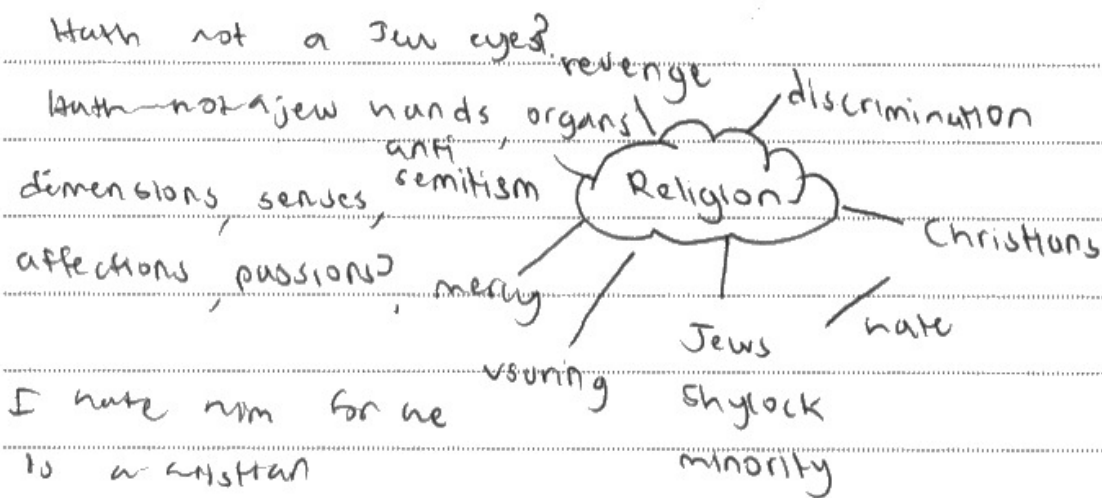 Hath not a Jew eyes?
Hath not a jew hands, organs,
dimensions, senses,
affections, passions?,
I hate him for he
is a christian
Religion
revenge
discrimination
Christians
hate
Jews
Shylock
minority
usuring
mercy
anti
semitism